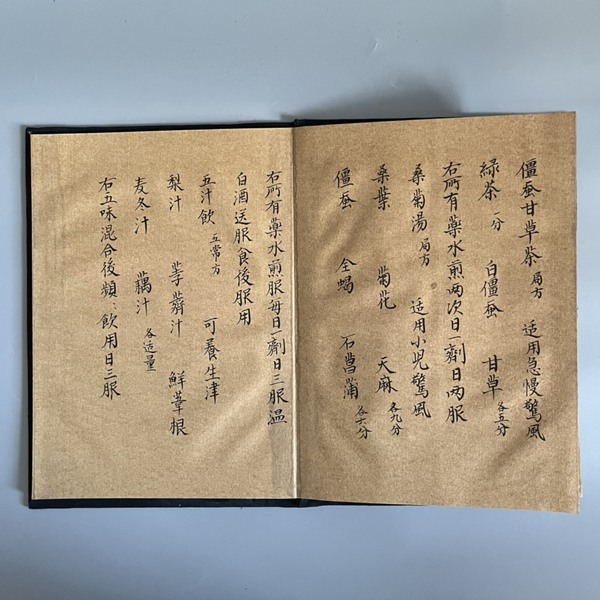 僵蚕甘草茶 局方 适用急慢驚风
緑茶 一分 白僵蚕 甘草 各五分
右所有藥水煎两次日一劑日两服
桑菊湯 局方 适用小児驚风
桑葉 菊花 天麻 各九分
僵蚕 全蝎 石菖蒲 各六分
右所有藥水煎服每日一劑日三服温
白酒送服食後服用
五汁飲 五常方 可養生津
梨汁 荸薺汁 鮮葦根
麦冬汁 藕汁 各适量
右五味混合後頻飲用日三服